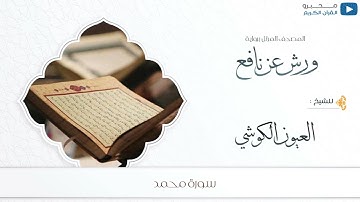 محبرو
القرآن الكريم
المصحف المنزل برواية
ورش عن نافع
للشيخ :
العيون الكوشي
سورة محمد